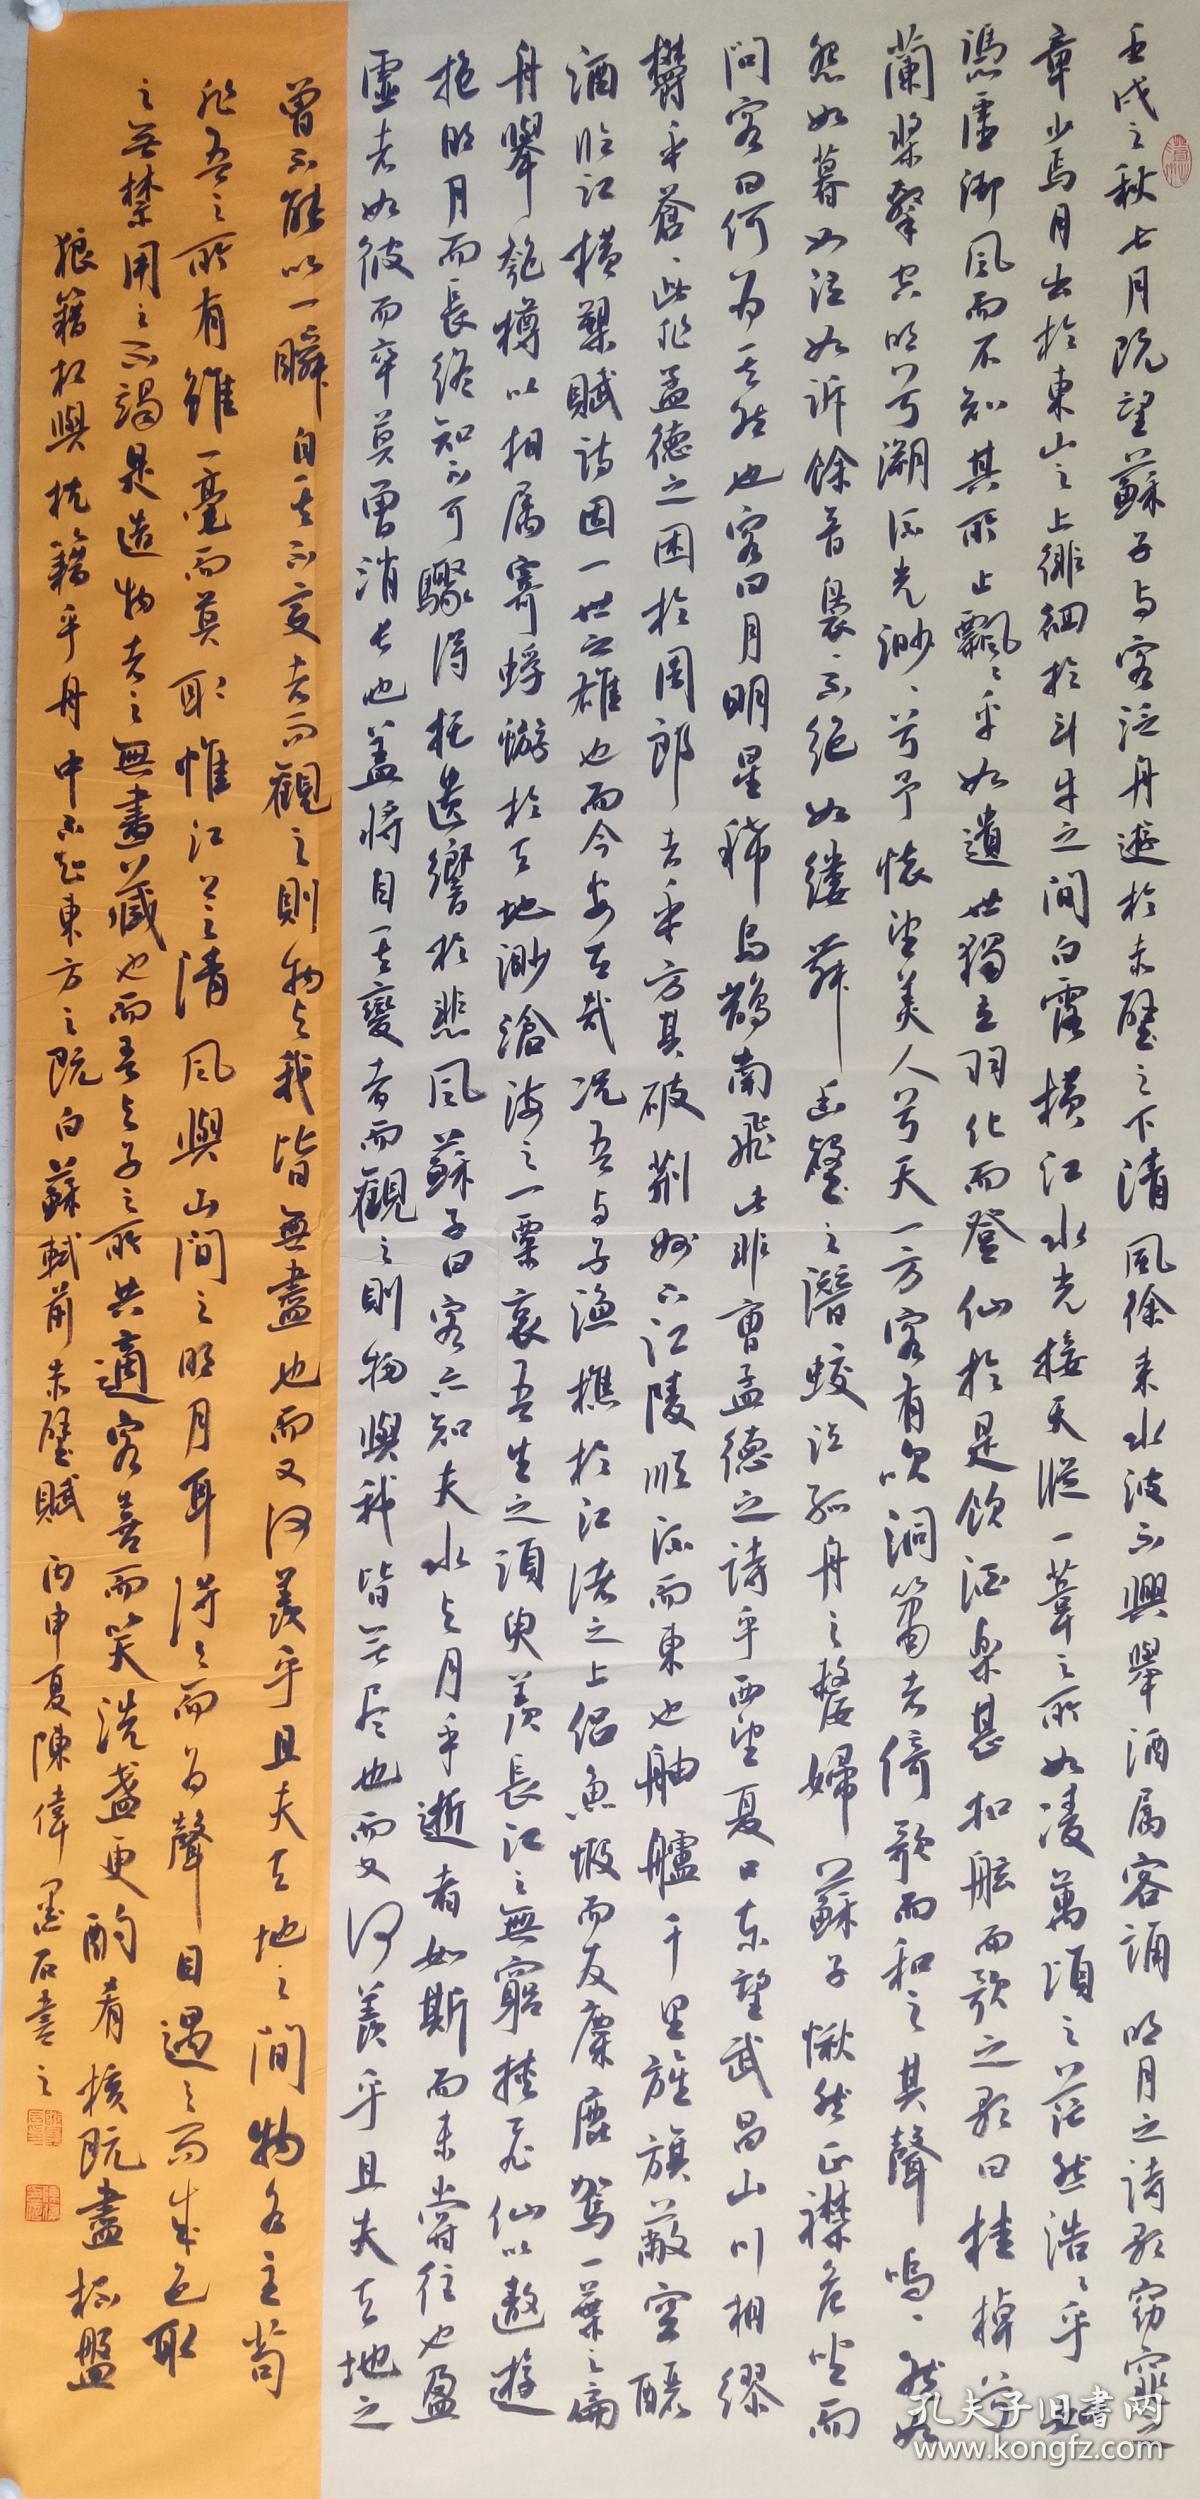 壬戌之秋七月既望蘇子与客泛舟遊於赤壁之下清風徐来水波不興舉酒属客誦明月之詩歌窈窕之
章少焉月出於東山之上徘徊於斗牛之間白露横江水光接天縱一葦之所如凌萬頃之茫然浩〻乎如
馮虛御風而不知其所止飄〻乎如遺世獨立羽化而登仙於是飲酒樂甚扣舷而歌之歌曰桂棹兮
蘭槳擊空明兮溯流光渺〻兮予懷望美人兮天一方客有吹洞簫者倚歌而和之其聲嗚〻然如
怨如慕如泣如訴餘音裊〻不絕如縷舞幽壑之潛蛟泣孤舟之嫠婦蘇子愀然正襟危坐而
問客曰何为其然也客曰月明星稀烏鵲南飛此非曹孟德之詩乎西望夏口东望武昌山川相繆
欝乎蒼〻此非孟德之困於周郎者乎方其破荆州下江陵順流而東也舳艫千里旌旗蔽空釃
酒临江横槊賦詩固一世之雄也而今安在哉况吾与子漁樵於江渚之上侣魚蝦而友麋鹿駕一葉之扁
舟舉匏樽以相属寄蜉蝣於天地渺滄海之一粟哀吾生之須臾羨長江之無窮挟飛仙以遨遊
抱明月而長終知不可驟得托遗響於悲風蘇子曰客亦知夫水与月乎逝者如斯而未嘗往也盈
虛者如彼而卒莫曾消长也盖將自其變者而觀之則物與我皆无尽也而又何羨乎且夫天地之
曾不能以一瞬自其不变者而觀之則物与我皆無盡也而又何羨乎且夫天地之間物各主苟
非吾之所有雖一毫而莫取惟江上之清風與山間之明月耳得之而为聲目遇之而成色取
之无禁用之不竭是造物者之無盡藏也而吾与子之所共適客喜而笑洗盏更酌肴核既盡杯盤
狼籍相與枕籍乎舟中不知東方之既白蘇軾前赤壁賦 丙申夏陳偉墨石書之
孔夫子旧书网
www.kongfz.com